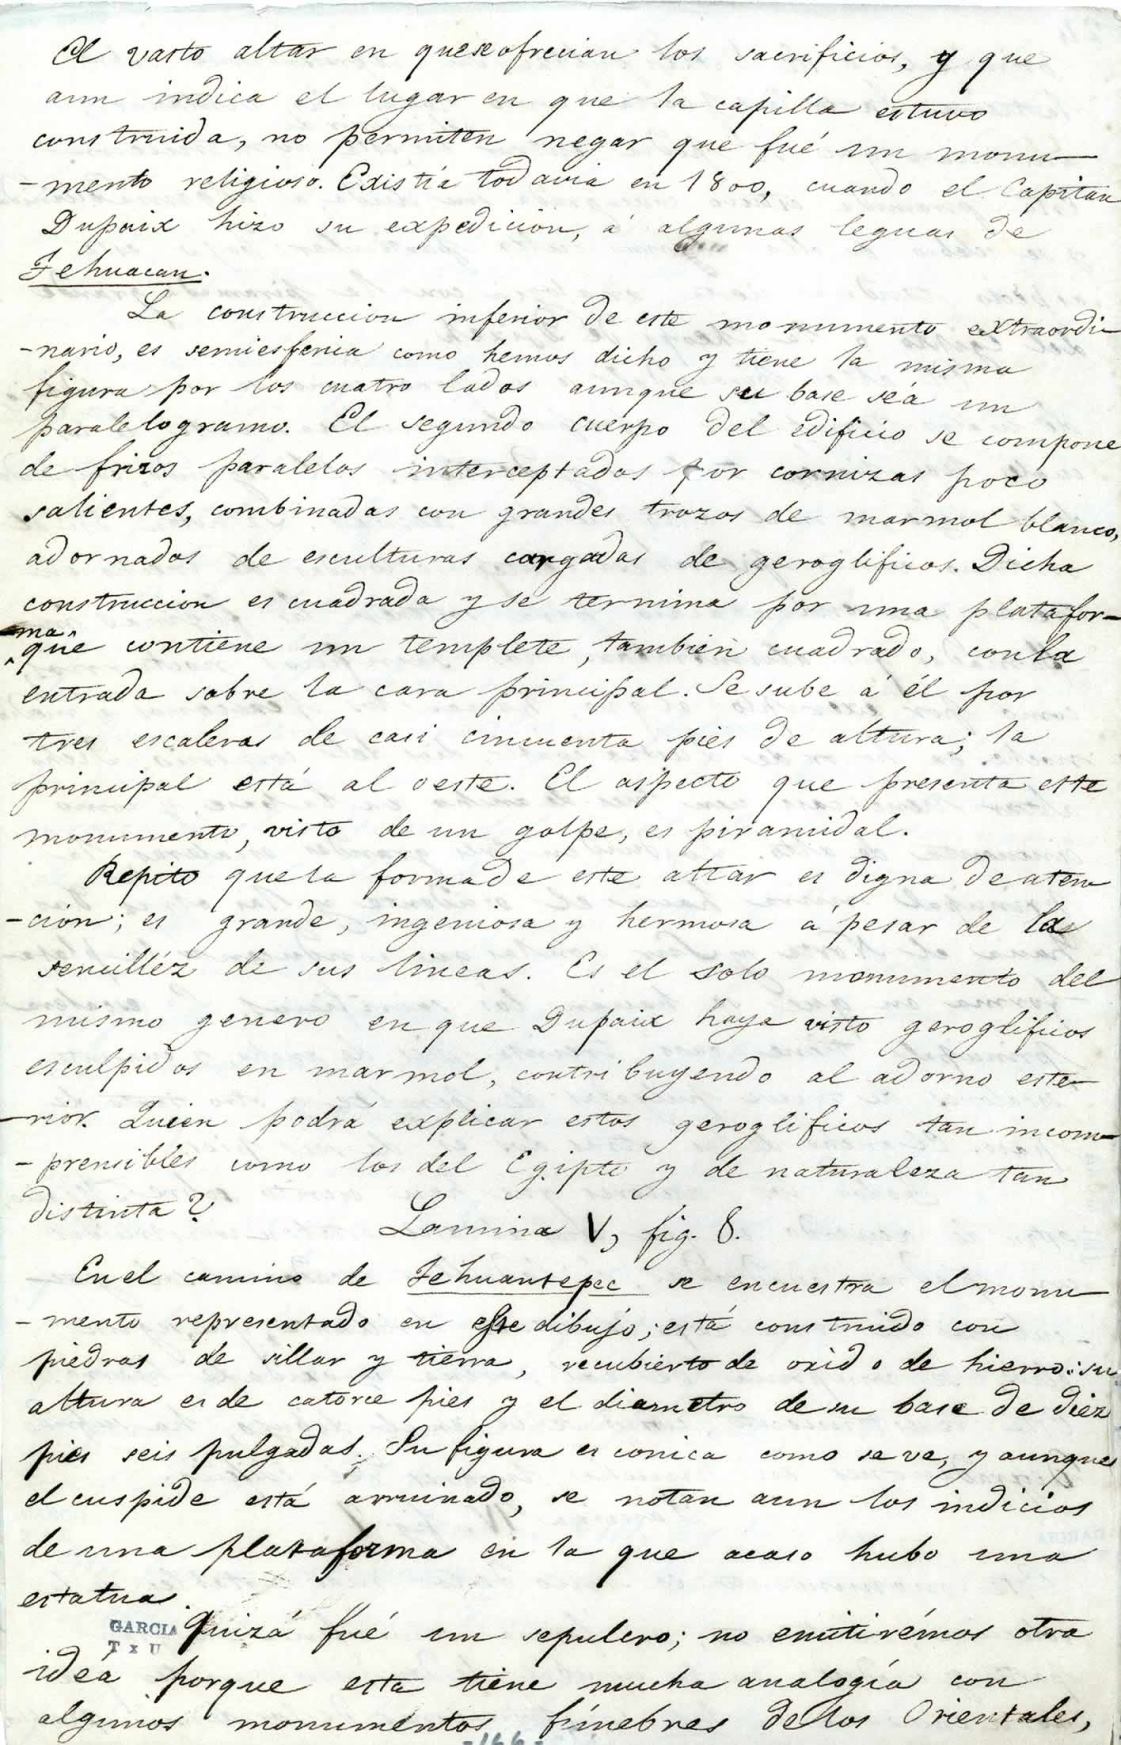 El vasto altar en que se ofrecian los sacrificios, y que
aun indica el lugar en que la capilla estuvo
construida, no permiten negar que fué un monu-
-mento religioso. Existía todavia en 1800, cuando el Capitan
Dupaix hizo su expedicion, á algunas leguas de
Tehuacan.
La construccion inferior de este monumento extraordi-
-nario, es semiesferica como hemos dicho y tiene la misma
figura por los cuatro lados aunque su base séa un
paralelogramo. El segundo cuerpo del edificio se compone
de frizos paralelos interceptados por cornizas poco
salientes, combinadas con grandes trozos de marmol blanco,
adornados de esculturas cargadas de geroglificos. Dicha
construccion es cuadrada y se termina por una platafor-
ma
que contiene un templete, tambien cuadrado, con la
entrada sobre la cara principal. Se sube á él por
tres escaleras de casi cincuenta piés de altura; la
principal está al oeste. El aspecto que presenta este
monumento, visto de un golpe, es piramidal.
Repito que la forma de este altar es digna de aten
-cion; es grande, ingeniosa y hermosa á pesar de la
sencilléz de sus lineas. Es el solo monumento del
mismo genero en que Dupaix haya visto geroglificos
esculpidos en marmol, contribuyendo al adorno este-
-rior. Quien podrá explicar estos geroglificos tan incom-
-prensibles como los del Egipto y de naturaleza tan
distinta?
Lamina V, fig. 8.
En el camino de Tehuantepec se encuestra el monu-
-mento representado en este dibujo; está construido con
piedras de sillar y tierra, recubierto de oxido de hierro: su
altura es de catorce pies y el diametro de su base de diez
pies seis pulgadas. Su figura es conica como se ve, y aunque
el cuspide está arruinado, se notan aun los indicios
de una plataforma en la que acaso hubo una
estatua.
Quizá fué un sepulcro; no emitirémos otra
GARCIA
T x U
idea porque esta tiene mucha analogía con
algunos monumentos fúnebres de los Orientales,
-166-